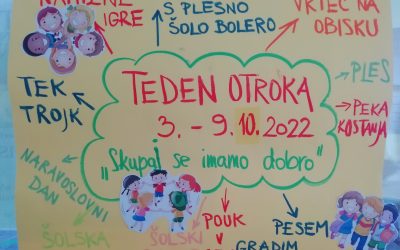 NAMIZNE
IGRE
S PLESNO
ŠOLO BOLERO
VRTEC NA
OBISKU
TEK
TROJK
TEDEN OTROKA
3. - 9. 10. 2022
"Skupaj se imamo dobro"
PLES
PEKA
KOSTANJA
NARAVOSLOVNI
DAN
ŠOLSKA
ŠOLSKI
POUK
GRADIM
PESEM